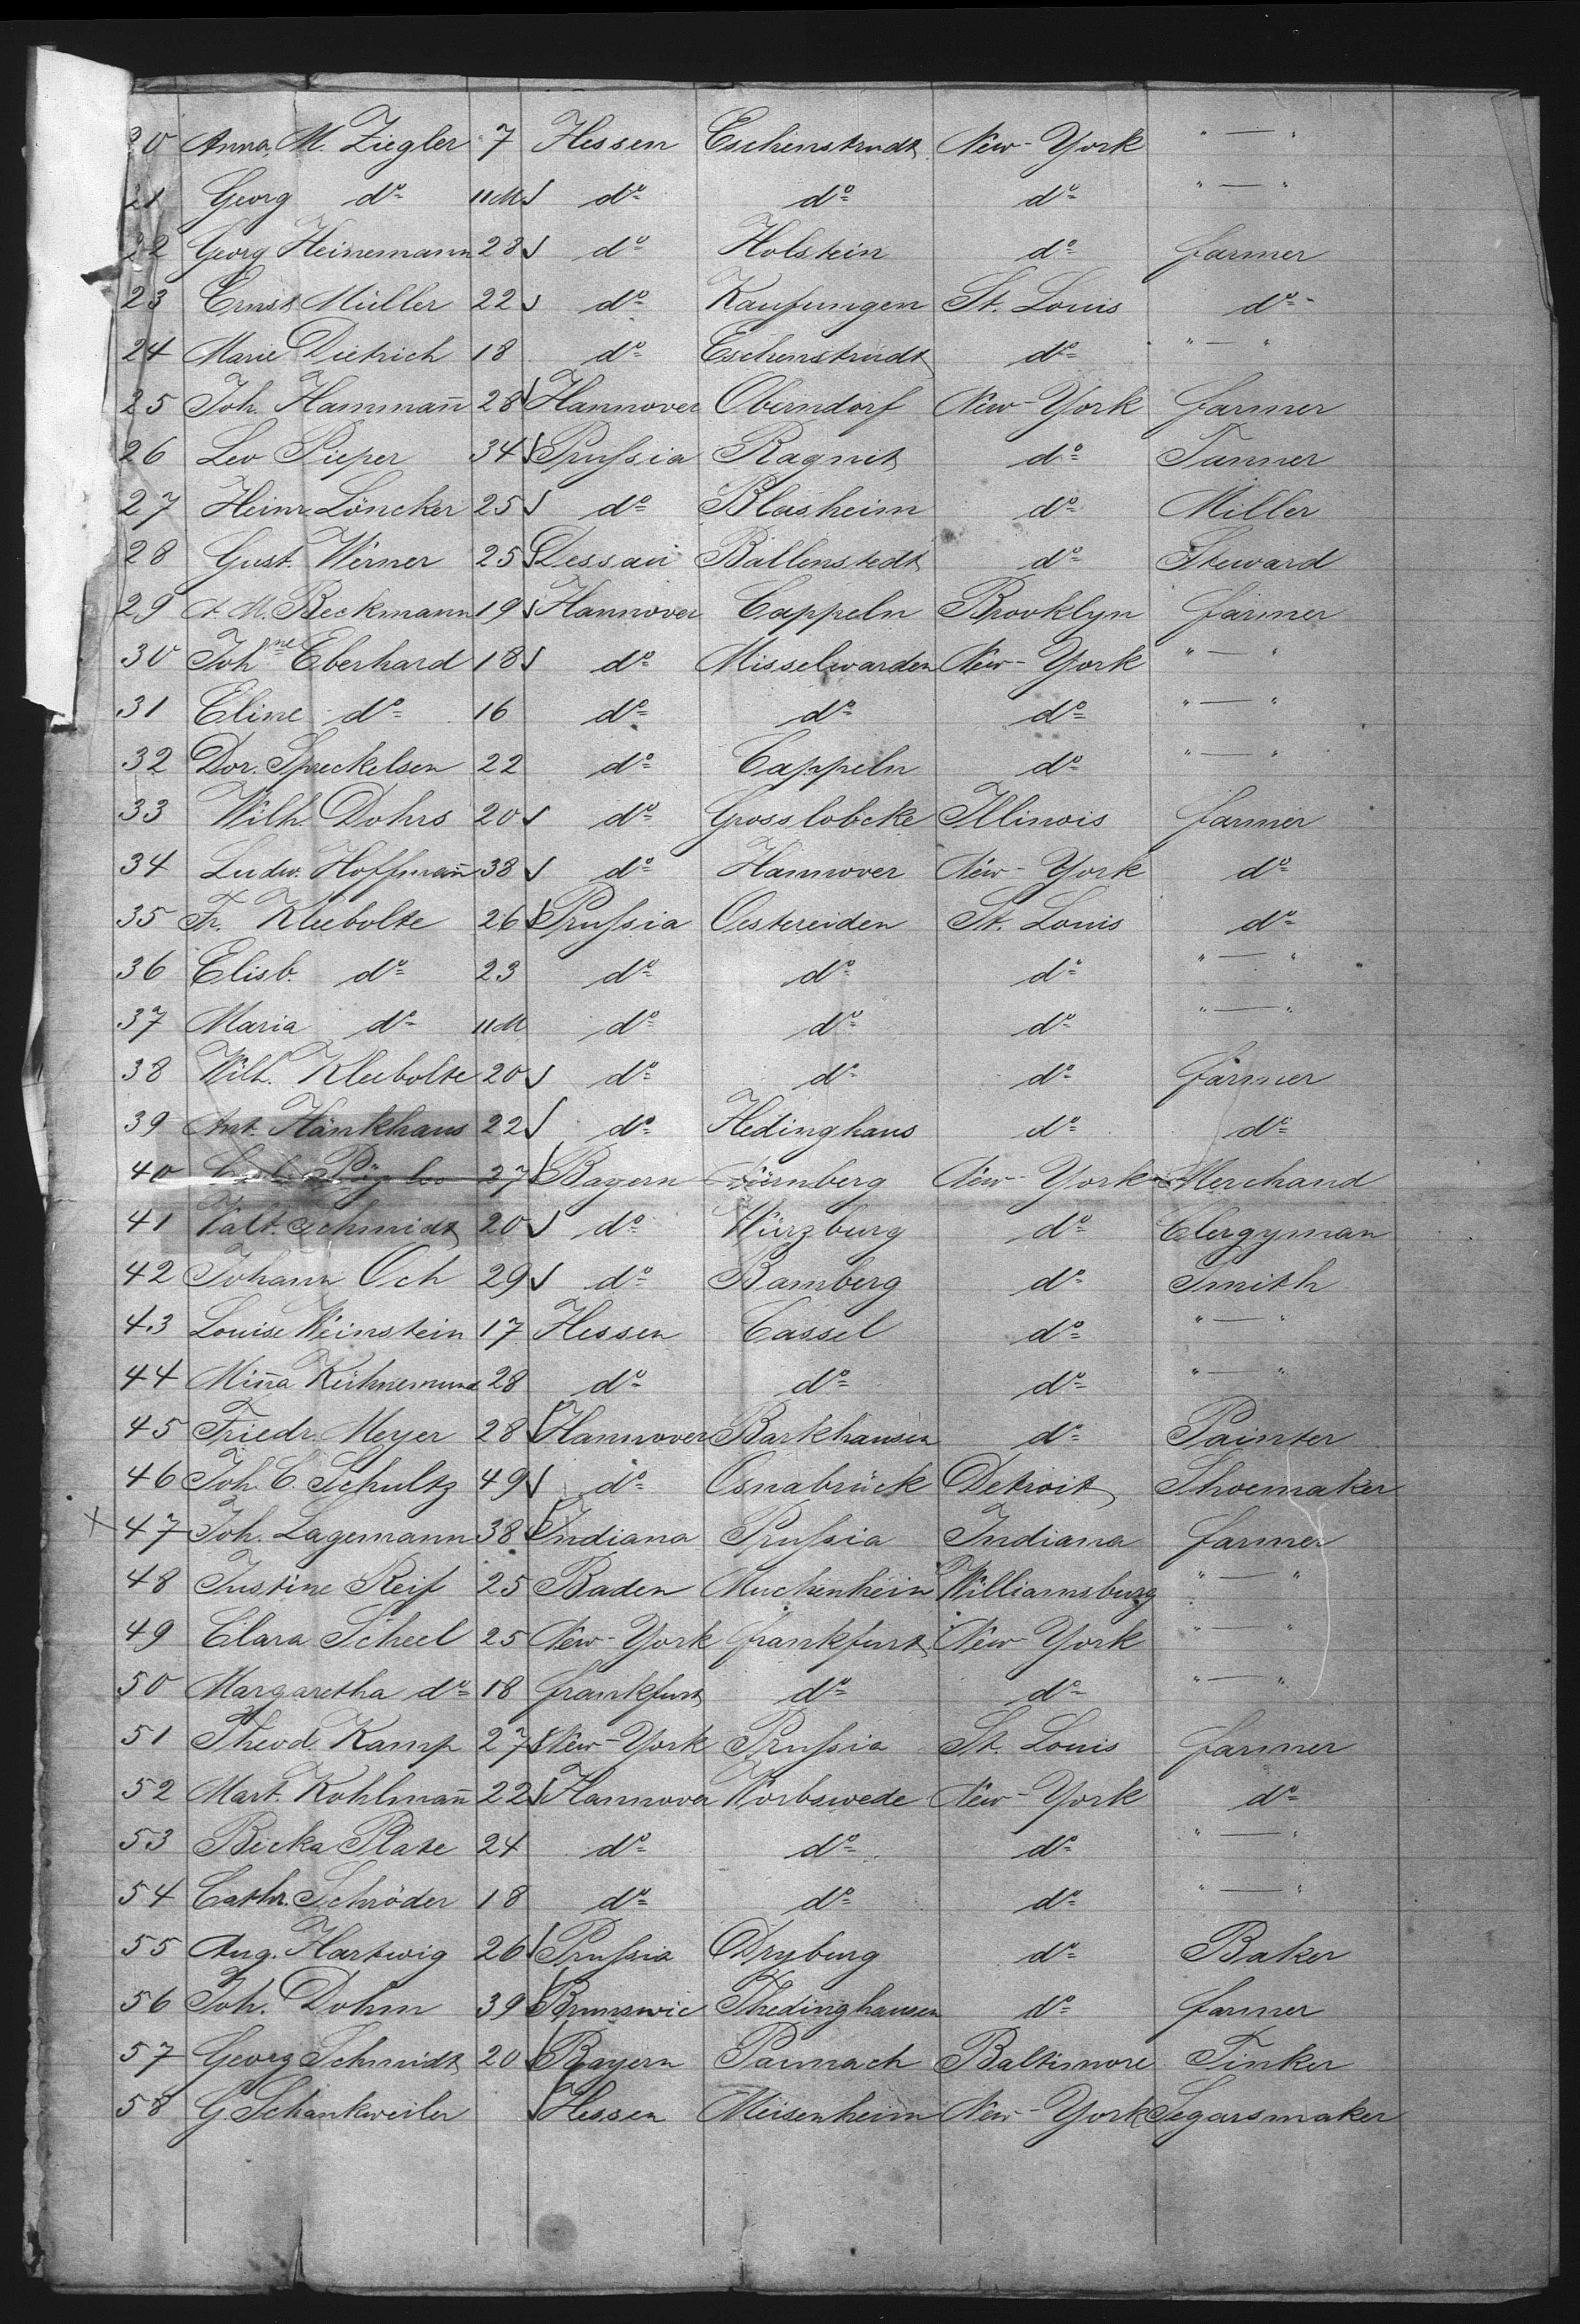 20 Anna M. Ziegler 7 Hessen Eschenstrudt New-York " — "
21 Georg do 11M √ do do do " — "
22 Georg Heinemann 28 √ do Holstein do farmer
23 Ernst Müller 22 √ do Kaufungen St. Louis do
24 Marie Dietrich 18 do Eschenstrudt do " — "
25 Joh. Hammann̄ 28 √ Hannover Oberndorf New-York farmer
26 Leo Pieper 34 √ Prussia Ragnit do Tanner
27 Heinr. Löncker 25 √ do Blasheim do Miller
28 Gust. Werner 25 √ Dessau Ballenstedt do Steward
29 A. M. Beckmann 19 √ Hannover Cappeln Brooklyn farmer
30 Johne Eberhard 18 √ do Misselwarden New-York " — "
31 Eline do 16 do do do " — "
32 Dor. Spreckelsen 22 do Cappeln do " — "
33 Wilh. Dohrs 20 √ do Grosslobcke Illinois farmer
34 Ludw. Hoffmañ 38 √ do Hannover New-York do
35 Fr. Kleebolte 26 √ Prussia Oestereiden St. Louis do
36 Elisb. do 23 do do do " — "
37 Maria do 11M do do do " — "
38 Wilh. Kleebolte 20 √ do do do farmer
39 Ant. Hänkhaus 22 √ do Hedinghaus do do
40 27 √ Bayern Nürnberg New-York Merchand
41 Valt. Schmidt 20 √ do Würzburg do Clergyman
42 Johann Och 29 √ do Bamberg do Smith
43 Louise Weinstein 17 Hessen Cassel do " — "
44 Miña Kühnemund 28 do do do " — "
45 Friedr. Meyer 28 √ Hannover Barkhausen do Painter
46 Joh. C. Schultz 49 √ do Osnabrück Detroit Shoemaker
x 47 Joh. Lagemann 38 √ Indiana Prussia Indiana farmer
48 Justine Reif 25 Baden Muckenheim Williamsburg " — "
49 Clara Scheel 25 New-York frankfurt New-York " — "
50 Margaretha do 18 frankfurt do do " — "
51 Theod. Kamp 27 √ New-York Prussia St. Louis farmer
52 Mart. Kohlmañ 22 √ Hannover Worbswede New-York do
53 Becka Plate 24 do do do " — "
54 Cathr. Schröder 18 do do do " — "
55 Aug. Hartwig 26 √ Prussia Dryburg do Baker
56 Joh. Dohm 39 √ Brunswic Thedinghausen do farmer
57 Georg Schmidt 20 √ Bayern Paunach Baltimore Tinker
58 G. Schankweiler √ Hessen Meisenheim New-York Segarsmaker